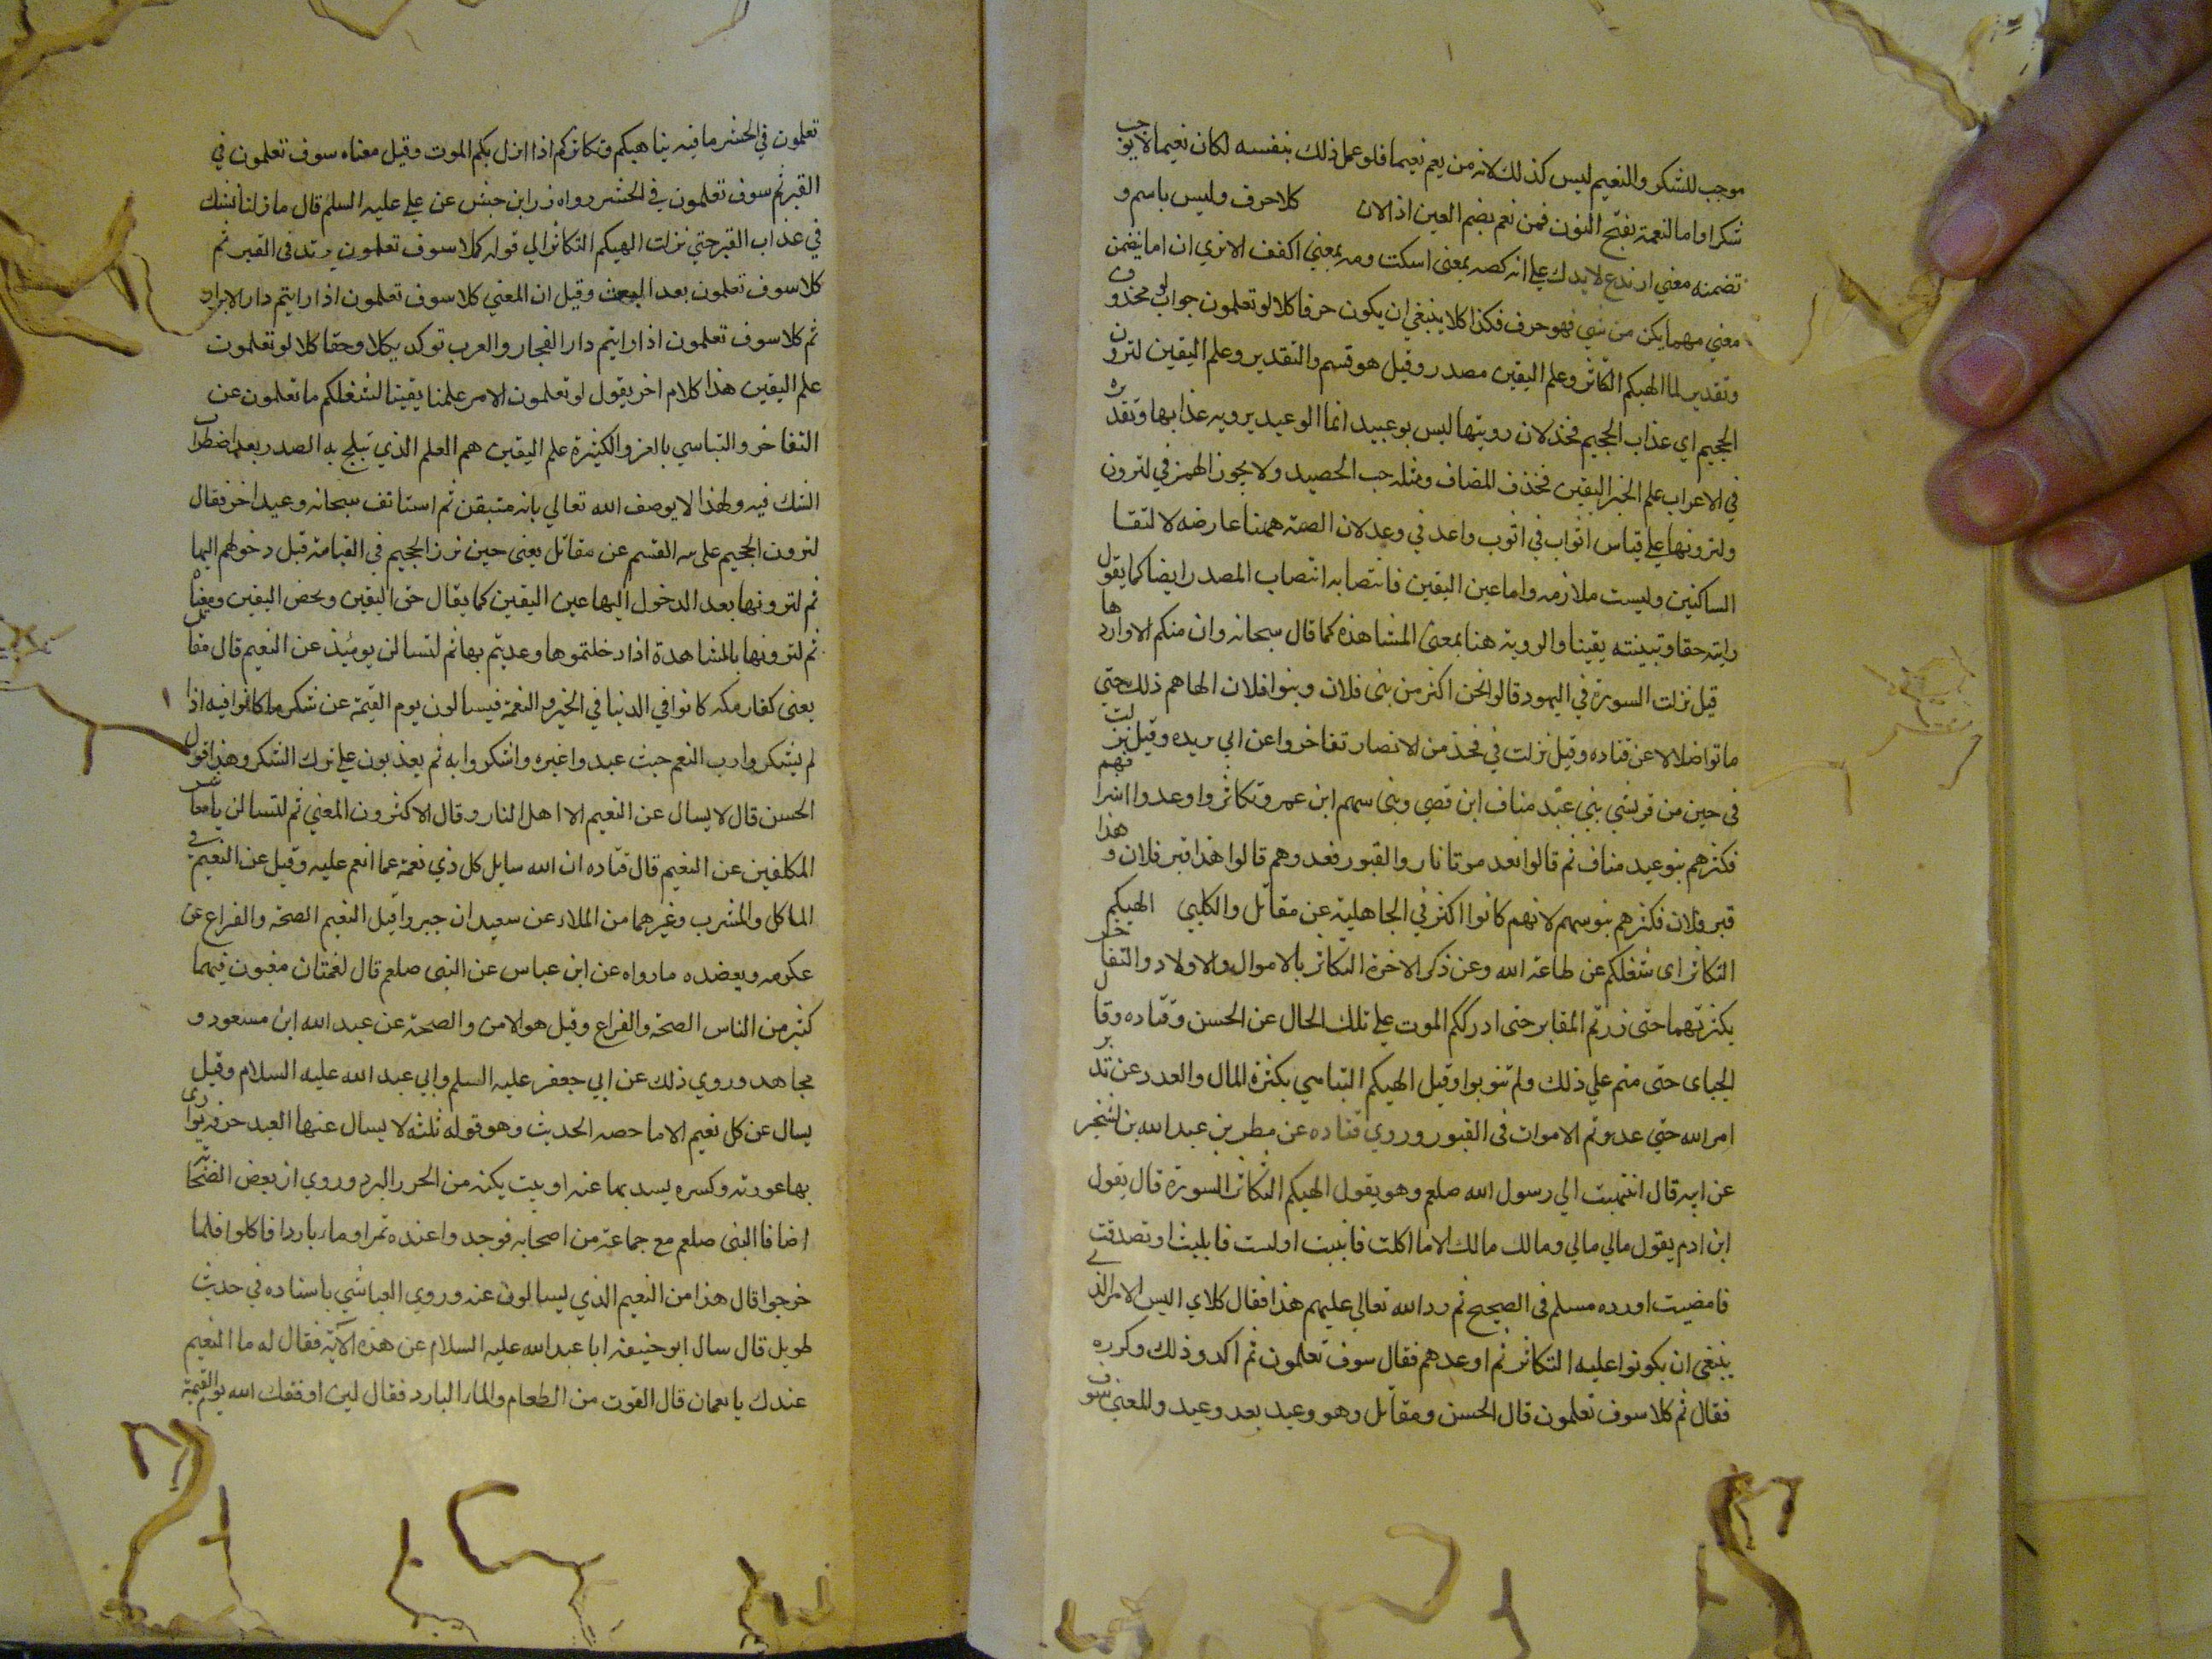 موجب للشكر والنعيم ليس كذلك لانه من يعم نعيما فلو عمل ذلك بنفسه لكان نعيما لا يوجب
شكرا واما النعمة بفتح النون فمن نعم بضم العين اذا لان كلا حرف وليس باسم و
تضمنه معني ارتدع لا يدل علي انه كصه بمعنى اسكت ومه بمعني اكفف الا تري ان اما يتضمن
معني مهما يكن من شي فهو حرف فكذا كلا ينبغي ان يكون حرفا كلا لو تعلمون جواب لو محذوف
وتقديره لما الهيكم التكاثر وعلم اليقين مصدر وقيل هو قسم والتقدير وعلم اليقين لترون
الجحيم اي عذاب الجحيم فحذ لان رويتها ليس بوعيد انما الوعيد برويه عذابها وتقديره
في الاعراب علم الخبر اليقين فحذف المضاف ومثله حب الحصيد ولا يجوز الهمز في لترون
ولترونها علي قياس اثواب في اثوب واعد في وعد لان الضمة ههنا عارضه لالتقا
الساكنين وليست ملازمه واما عين اليقين فانتصابه انتصاب المصدر ايضا كما يقول
رايته حقا وتبينته يقينا والرويه هنا بمعنى المشاهده كما قال سبحانه وان منكم الا واردها
قيل نزلت السورة في اليهود قالوا نحن اكثر من بنى فلان وبنوا فلان الهاهم ذلك حتي
ماتوا ضلالا عن قتاده وقيل نزلت في فخذ من الانصار تفاخروا عن ابي بريده وقيل نزلت
في حين من قريش بني عبد مناف ابن قصي وبنى سهم ابن عمرو تكاثروا وعدوا اشرافهم
فكثرهم بنو عبد مناف ثم قالوا نعد موتانا زاروا القبور فعدوهم قالوا هذا قبر فلان وهذا
قبر فلان فكثرهم بنو سهم لانهم كانوا اكثر في الجاهلية عن مقاتل والكلبي الهيكم
التكاثر اى شغلكم عن طاعة الله وعن ذكر الاخرة التكاثر بالاموال والاولاد والتفاخر
بكثرتهما حتى زرتم المقابر حتى ادرككم الموت علي تلك الحال عن الحسن وقتاده وقال
الجباى حتى متم علي ذلك ولم تتوبوا وقيل الهيكم التباهي بكثرة المال والعدد عن تدبر
امر الله حتي عددتم الاموات فى القبور وروي قتاده عن مطر بن عبد الله بن الشخير
عن ابيه قال انتهيت الي رسول الله صلعم وهو يقول الهيكم التكاثر السورة قال يقول
ابن ادم يقول مالي مالي وما لك مالك الا ما اكلت فافنيت او لبست فابليت او تصدقت
فامضيت اورده مسلم فى الصحيح ثم رد الله تعالي عليهم هذا فقال كلا اي ليس الامر الذي
ينبغى ان يكونوا عليه التكاثر ثم اوعدهم فقال سوف تعلمون ثم اكد وذلك وكرره
فقال ثم كلا سوف تعلمون قال الحسن ومقاتل وهو وعيد بعد وعيد والمعني سوف
تعلمون في الحشر ما فيه يباهيكم وتكاثركم اذا انزل بكم الموت وقيل معناه سوف تعلمون في
القبر ثم سوف تعلمون في الحشر رواه زر ابن حبش عن علي عليه السلم قال ما زلنا نشك
في عذاب القبر حتي نزلت الهيكم التكاثر الي قوله كلا سوف تعلمون يريد فى القبر ثم
كلا سوف تعلمون بعد البعث وقيل ان المعني كلا سوف تعلمون اذا رايتم دار الابرار
ثم كلا سوف تعلمون اذا رايتم دار الفجار والعرب توكد بكلا وحقا كلا لو تعلمون
علم اليقين هذا كلام اخر يقول لو تعلمون الامر علمنا يقينا لشغلكم ما تعلمون عن
التفاخر والتباسي بالعز والكثرة علم اليقين هم العلم الذي تبلج به الصدر بعد اضطراب
الشك فيه ولهذا لا يوصف الله تعالي بانه متيقن ثم استانف سبحانه وعيدا اخر فقال
لترون الجحيم على مه القسم عن مقاتل يعنى حين تبرز الجحيم في القيامة قبل دخولهم اليها
ثم لترونها بعد الدخول اليها عين اليقين كما يقال حق اليقين ومحض اليقين ومعناه
ثم لترونها بالمشاهدة اذا دخلتموها وعذبتم بها ثم لتسالن يوميذ عن النعيم قال مقاتل
يعنى كفار مكه كانوا في الدنيا في الخير والنعمة فيسالون يوم القيمة عن شكر ما كانوا فيه اذا
لم يشكروا رب النعم حيث عبدوا غيره واشكروا به ثم يعذبون علي ترك الشكر وهذا قول
الحسن قال لا يسال عن النعيم الا اهل النار وقال الاكثرون المعني ثم لتسالن يا معاشر
المكلفين عن النعيم قال قتاده ان الله سايل كل ذي نعمة عما انعم عليه وقيل عن النعيم في
الماكل والمشرب وغيرهما من الملاذ عن سعيد ان جبير وقيل النعيم الصحة والفراغ عن
عكرمه ويعضده ما رواه عن ابن عباس عن النبى صلعم قال نعمتان مغبون فيهما
كثير من الناس الصحة والفراغ وقيل هو الامن والصحة عن عبد الله ابن مسعود و
مجاهد وروي ذلك عن ابي جعفر عليه السلم وابي عبد الله عليه السلام وقيل
يسال عن كل نعيم الا ما خصه الحديث وهو قوله ثلثه لا يسال عنها العبد خرقه يواري
بها عورته وكسره يسد بها عنه او بيت يكنه من الحر والبرد وروي ان بعض الصحابة
اضافا النبى صلعم مع جماعة من اصحابه فوجدوا عنده تمرا وماء باردا فاكلوا فلما
خرجوا قال هذا من النعيم الذي يسالون عنه وروي العياشي باسناده في حديث
طويل قال سال ابو حنيفة ابا عبد الله عليه السلام عن هذه الآية فقال له ما النعيم
عندك يا نعمان قال القوت من الطعام والماء البارد فقال لين اوقفك الله يوم القيمة